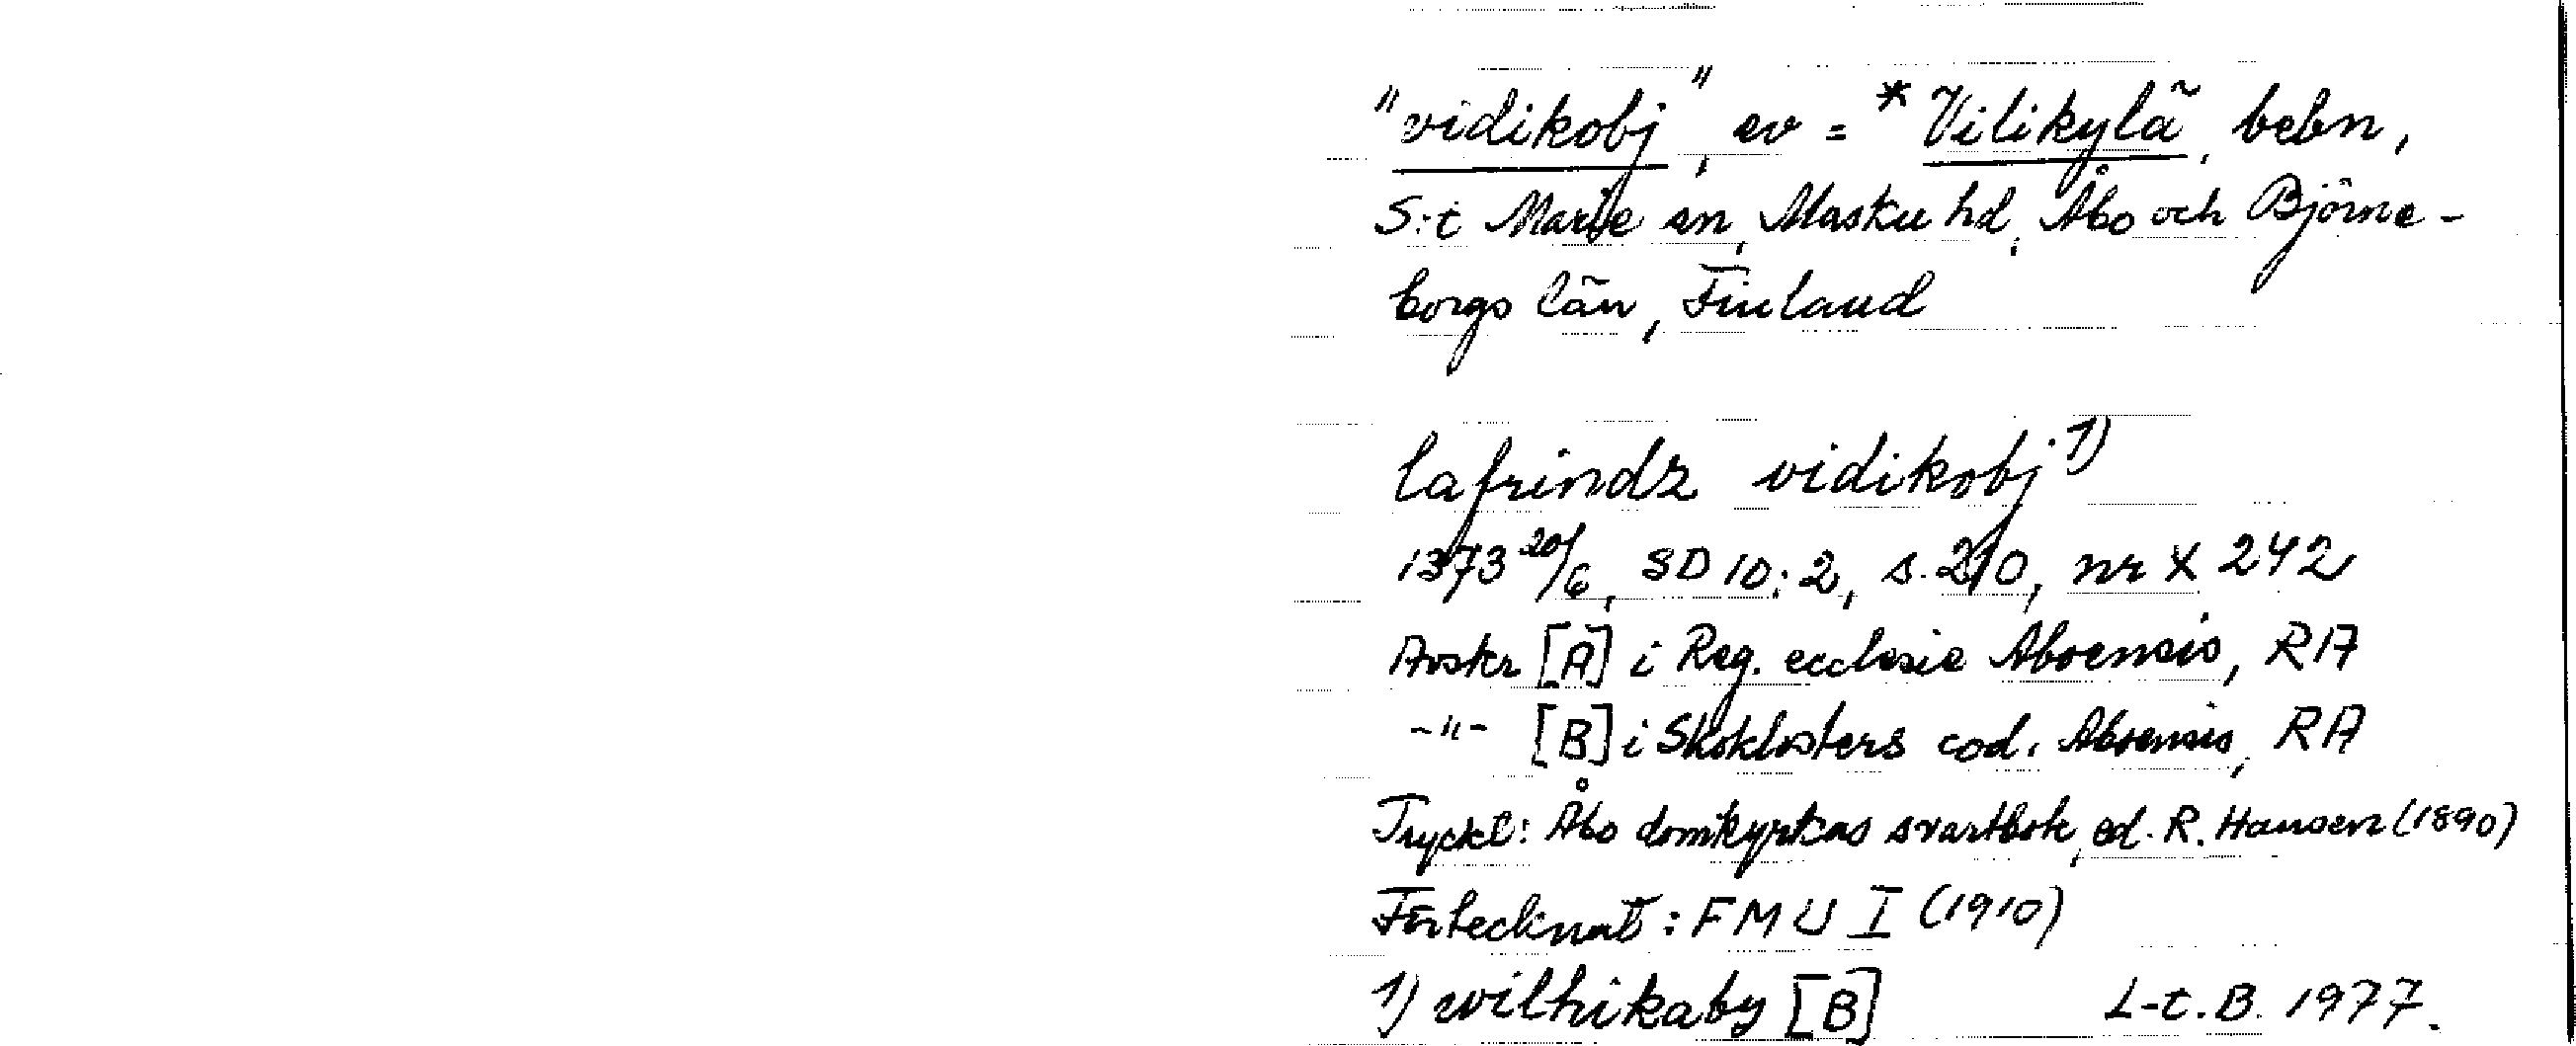 "vidikobj", ev = *Vilikylä, bebn,
S:t Marie sn, Masku hd, Åbo och Björne-
borgs län, Finland
lafrindz vidikobj 1)
1373 20/6, SD 10:2, s. 210, nr X 242
Avskr [A] i Reg. ecclesie Aboensis, RA
-"- [B] i Skoklosters cod. Aboensis, RA
Tryckt: Åbo domkyrkas svartbok, ed. R. Hausen (1890)
Förtecknat: FMU I (1910)
1) wilhikaby [B] L-t. B. 1977.